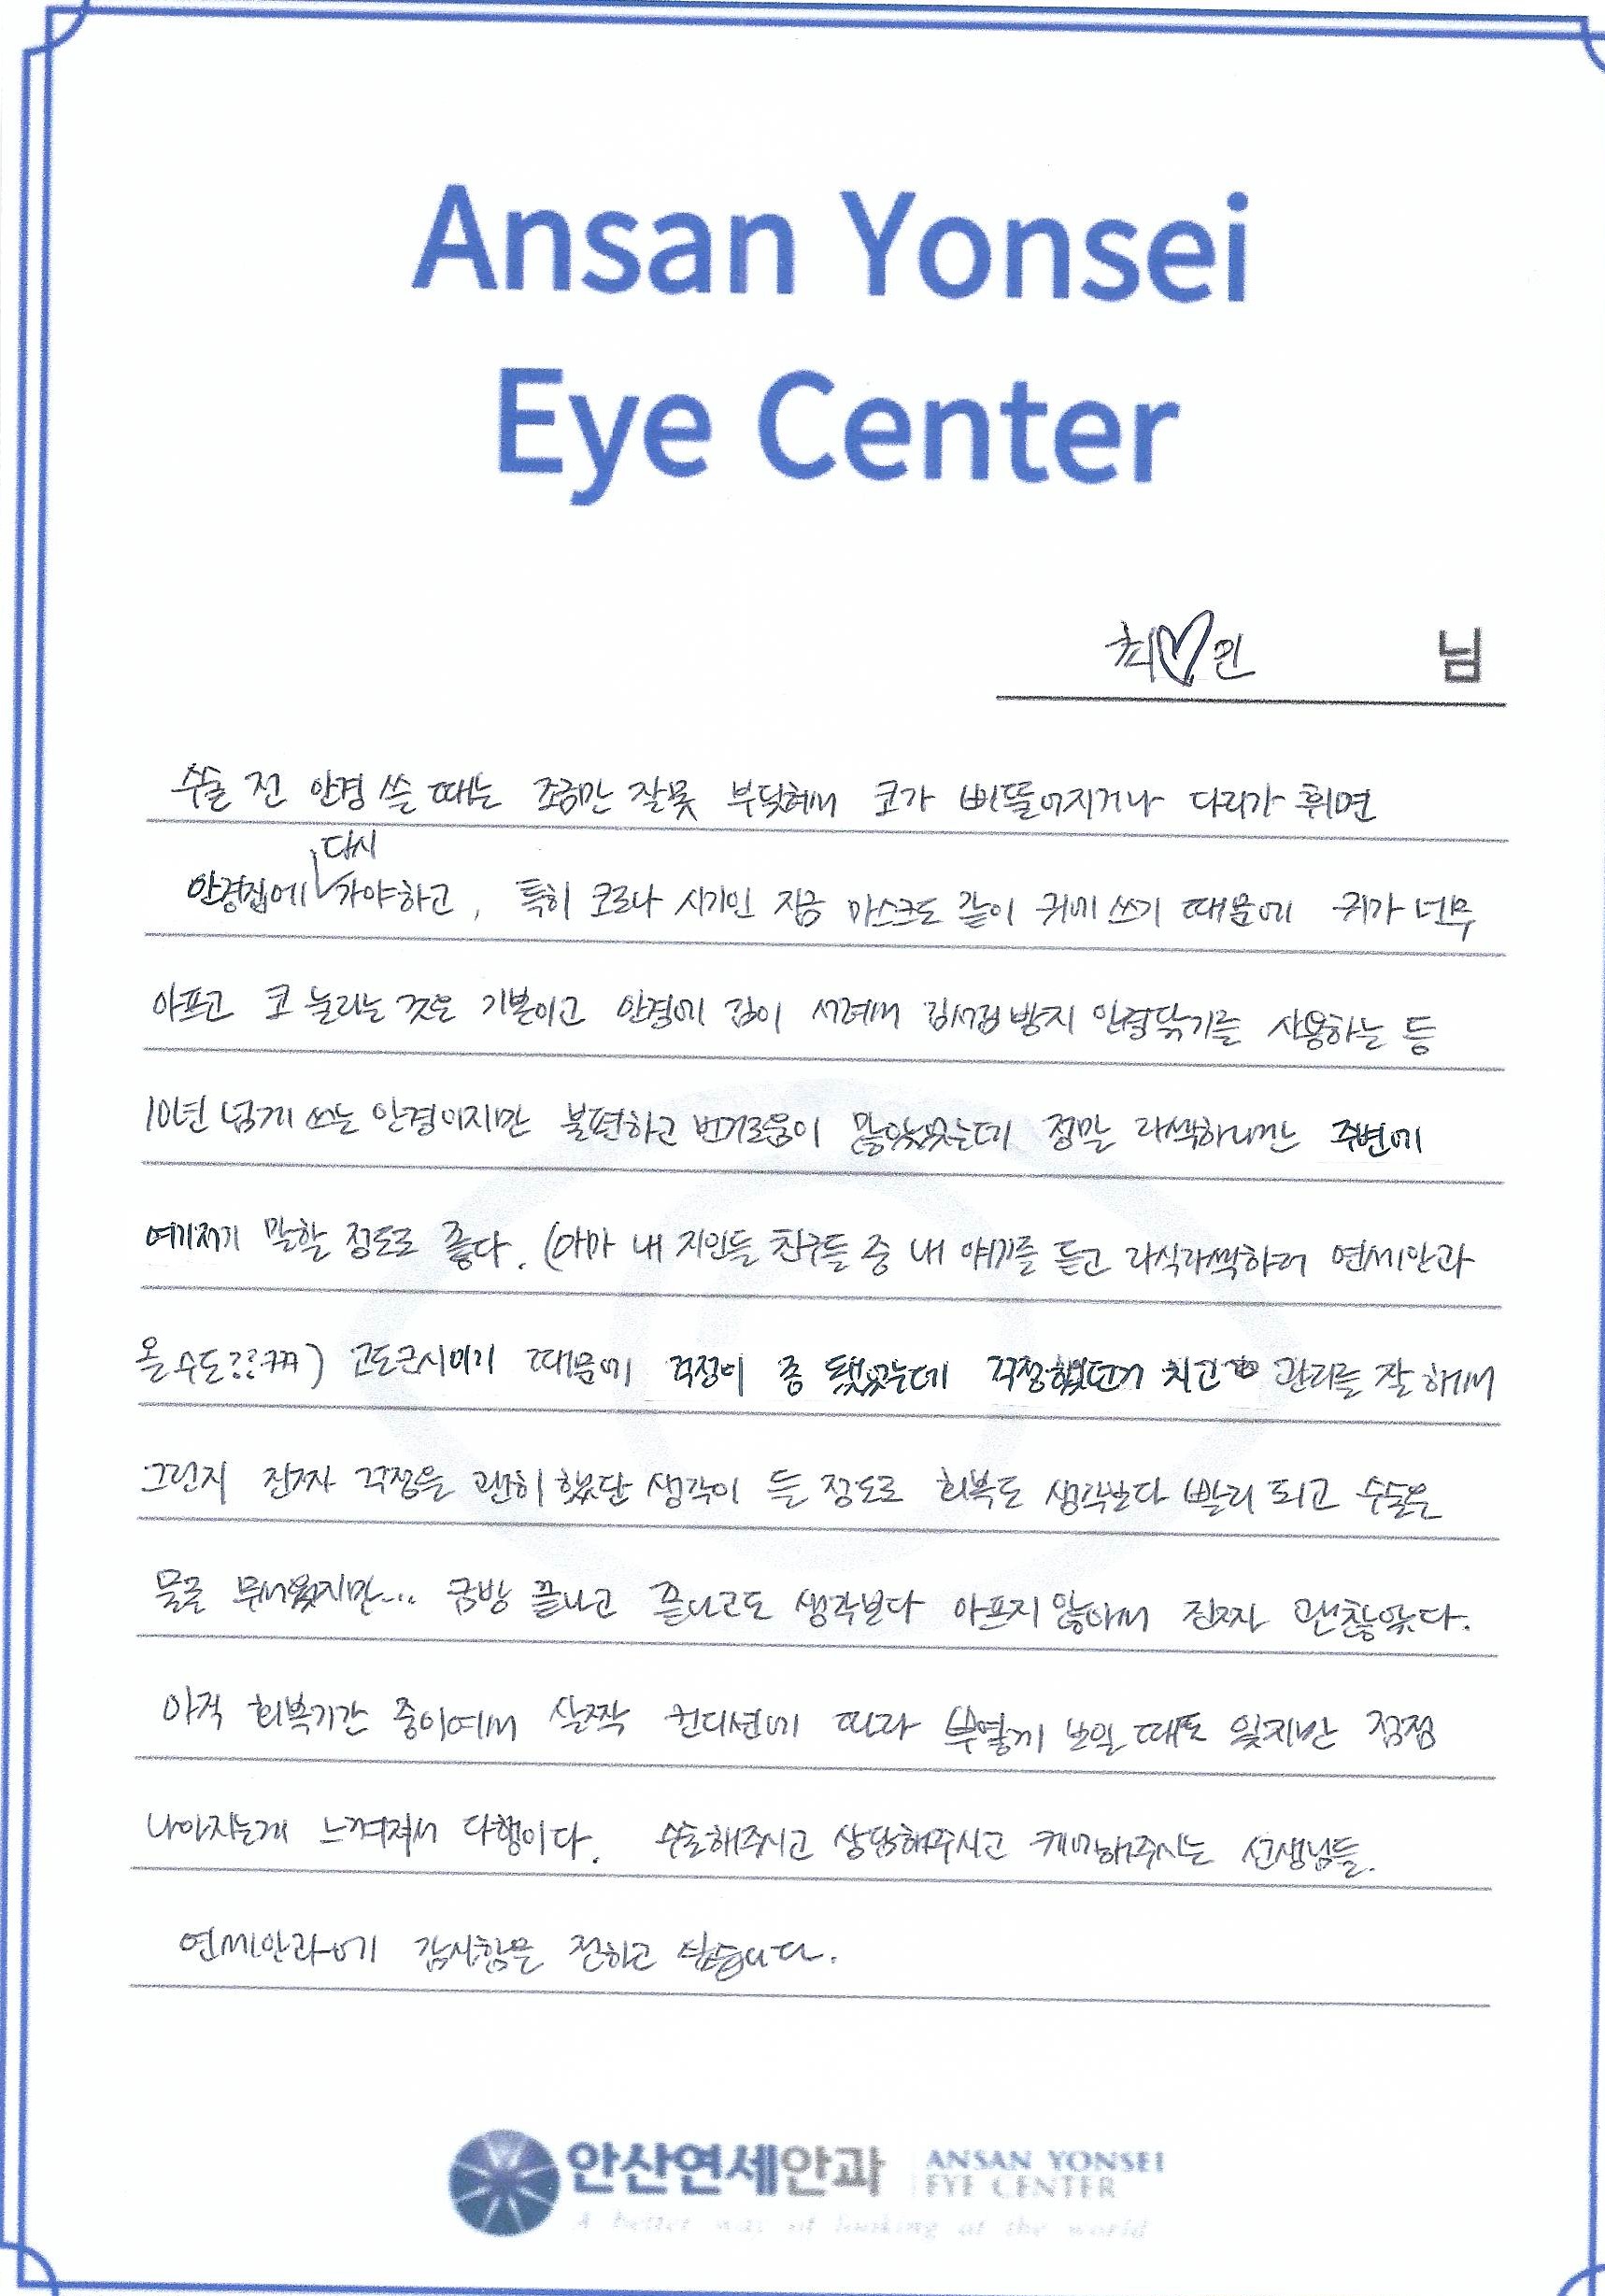 Ansan Yonsei
Eye Center
최♡민 님
수술 전 안경 쓸 때는 조금만 잘못 부딪혀서 코가 삐뚤어지거나 다리가 휘면
안경집에 다시 가야하고, 특히 코로나 시기인 지금 마스크도 같이 귀에 쓰기 때문에 귀가 너무
아프고 코 눌리는 것은 기본이고 안경에 김이 서려서 김서림방지 안경닦기를 사용하는 등
10년 넘게 쓰는 안경이지만 불편하고 번거로움이 많았었는데 정말 라섹하니깐 주변에
여기저기 말할 정도로 좋다. (아마 내 지인들 친구들 중 내 얘기를 듣고 라식라섹하러 연세안과
올수도??ㅋㅋ) 고도근시이기 때문에 걱정이 좀 됐었는데 걱정했던거 치고 관리를 잘 해서
그런지 진짜 걱정을 괜히 했단 생각이 들 정도로 회복도 생각보다 빨리 되고 수술은
물론 무서웠지만... 금방 끝나고 끝나고도 생각보다 아프지 않아서 진짜 괜찮았다.
아직 회복기간 중이여서 살짝 컨디션에 따라 뿌옇게 보일 때도 있지만 점점
나아지는게 느껴져서 다행이다. 수술해주시고 상담해주시고 케어해주시는 선생님들.
연세안과에 감사함을 전하고 싶습니다.
안산연세안과 ANSAN YONSEI
EYE CENTER
A better way of looking at the world